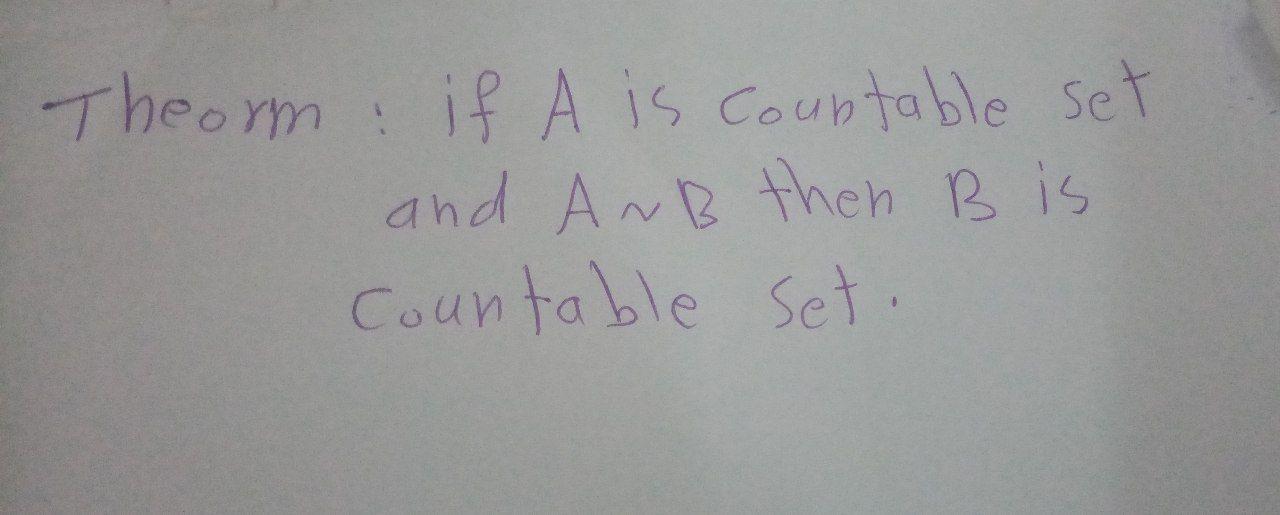 Theorm : if A is Countable set
and A ~ B then B is
Countable set.